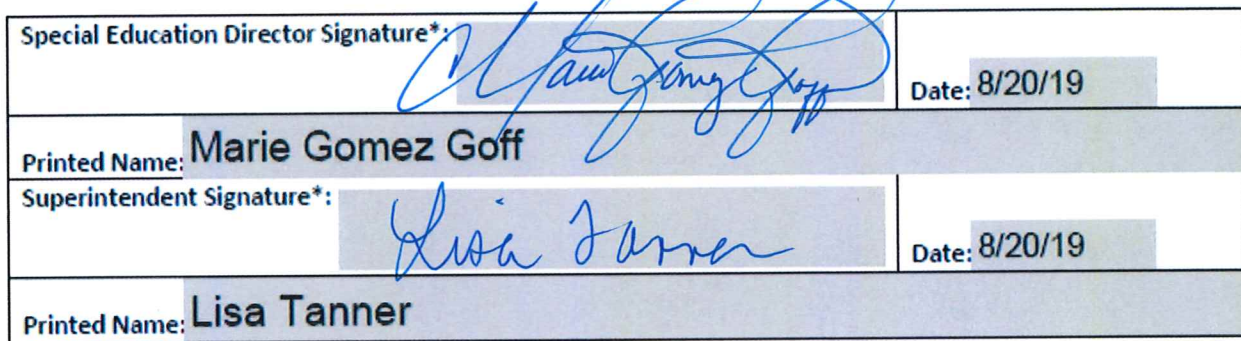 Special Education Director Signature*: Marie Gomez Goff
Date: 8/20/19
Printed Name: Marie Gomez Goff
Superintendent Signature*: Lisa Tanner
Date: 8/20/19
Printed Name: Lisa Tanner